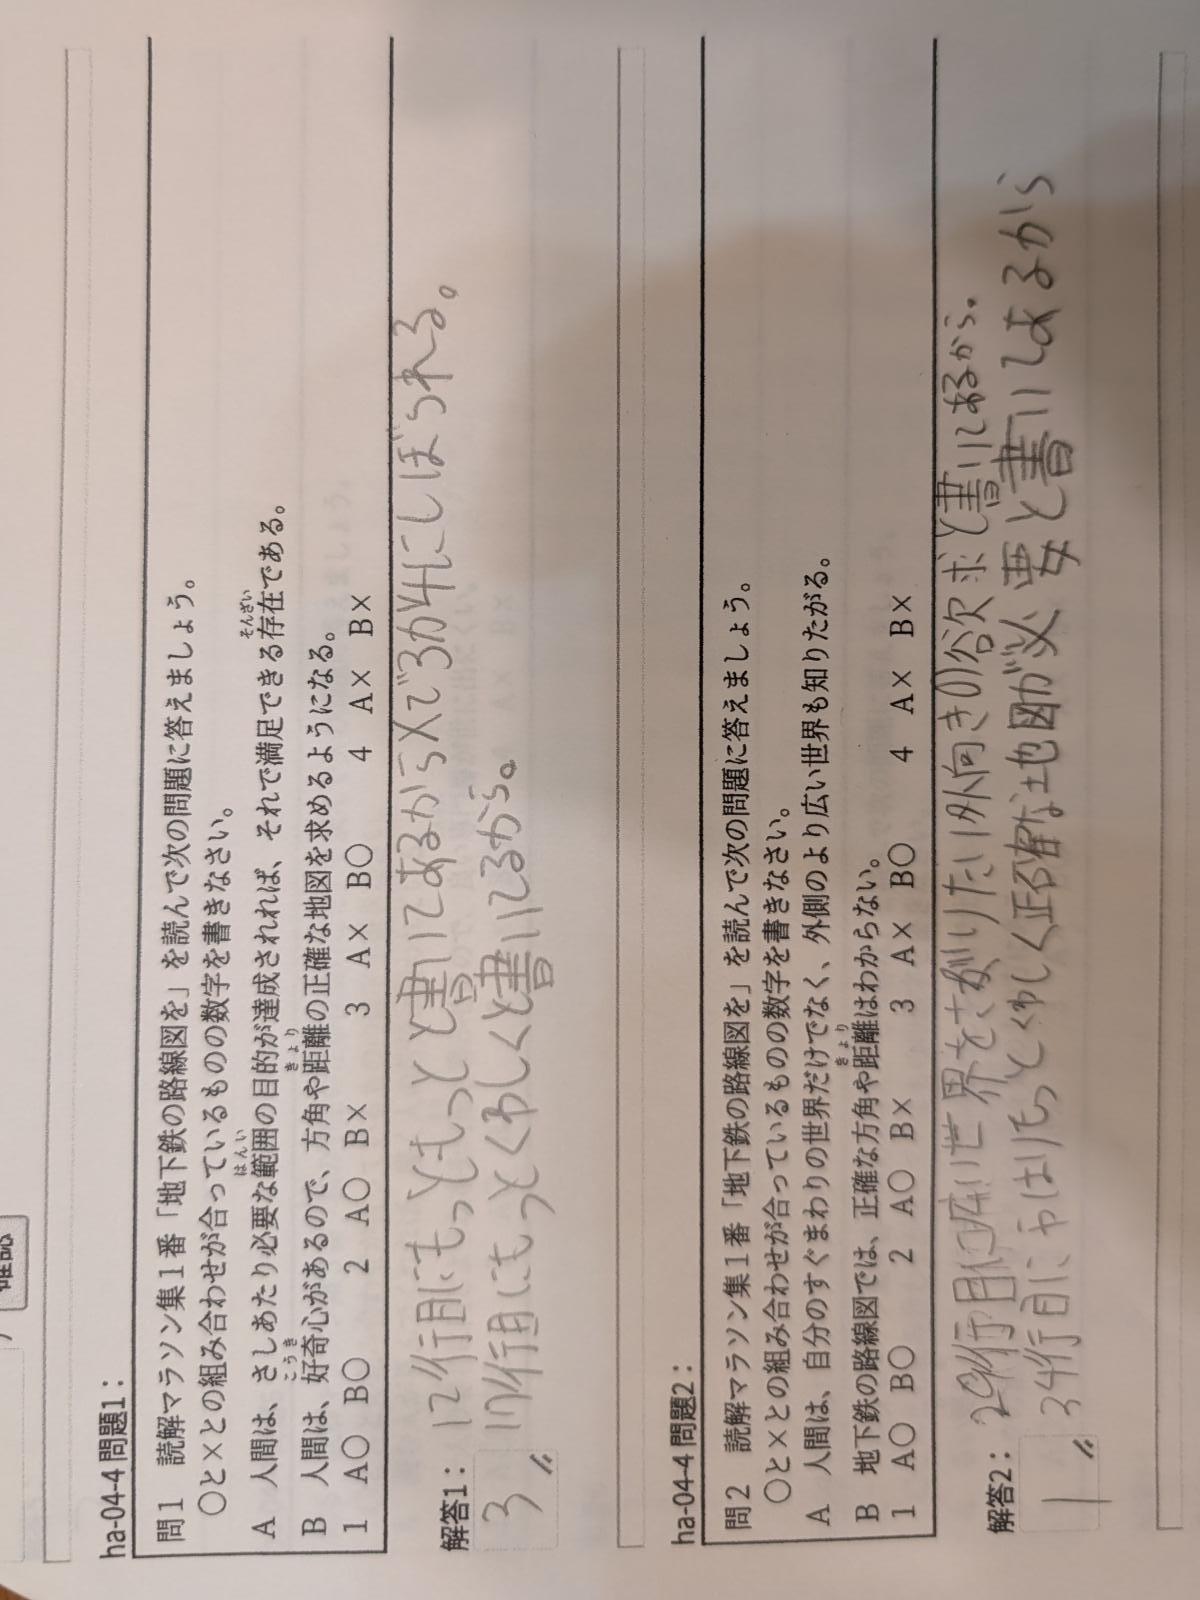 確認
ha-04-4 問題1：
問1 読解マラソン集1番「地下鉄の路線図を」を読んで次の問題に答えましょう。
○と×との組み合わせが合っているものの数字を書きなさい。
A 人間は、さしあたり必要な範囲の目的が達成されれば、それで満足できる存在である。
B 人間は、好奇心があるので、方角や距離の正確な地図を求めるようになる。
1 A○ B○ 2 A○ B× 3 A× B○ 4 A× B×
解答1：
12行目にもっともっと書いてあるから×で3か4にしぼられる。
3〃 17行目にもっとくわしくと書いてるから。
ha-04-4 問題2：
問2 読解マラソン集1番「地下鉄の路線図を」を読んで次の問題に答えましょう。
○と×との組み合わせが合っているものの数字を書きなさい。
A 人間は、自分のすぐまわりの世界だけでなく、外側のより広い世界も知りたがる。
B 地下鉄の路線図では、正確な方角や距離はわからない。
1 A○ B○ 2 A○ B× 3 A× B○ 4 A× B×
解答2：
29行目に広い世界をさぐりたい外向きの欲求と書いてあるから。
1〃 34行目にやはりもっとくわしく正確な地図が必要と書いてあるから